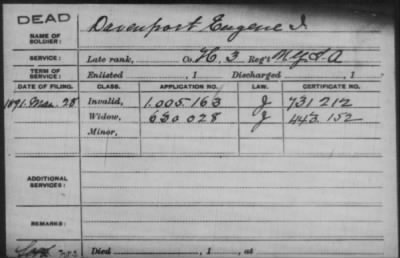 DEAD
NAME OF SOLDIER: Davenport Eugene I.
SERVICE: Late rank, Co. H. 3 Reg't N.Y. L. A
TERM OF SERVICE: Enlisted , 1 Discharged , 1
DATE OF FILING. CLASS. APPLICATION NO. LAW. CERTIFICATE NO.
1891. Mar. 28 Invalid, 1.005.163 J 731 212
Widow, 630 028 J 443.152
Minor,
ADDITIONAL SERVICES:
REMARKS:
Died , 1 , at